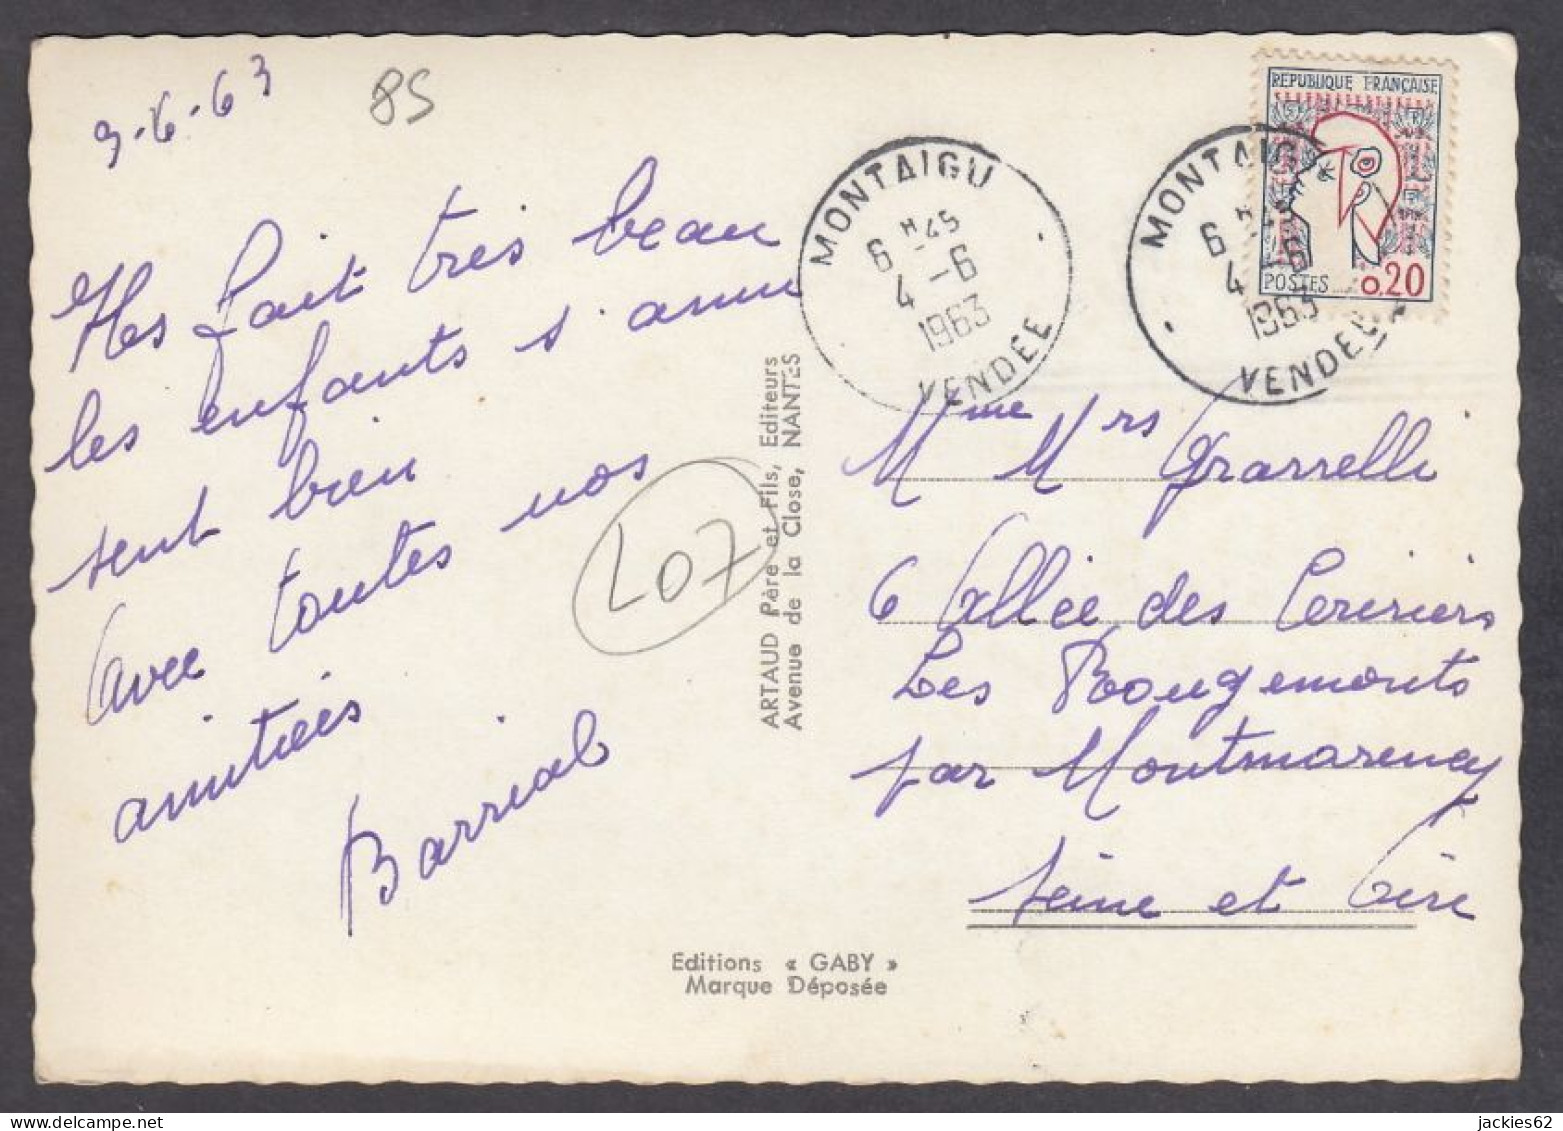 3-6-63
85
Hes fait tres beau
les enfants s'amu
sent bien
Avec toutes nos
amitiés
Barrial
L07
ARTAUD Père et Fils, Editeurs
Avenue de la Close, NANTES
Editions « GABY »
Marque Déposée
MONTAIGU
6 H45
4 -6
1963
VENDEE
MONTAIGU
6 H45
4 -6
1963
VENDEE
REPUBLIQUE FRANÇAISE
POSTES
0,20
Mme Mrs Grasselli
6 Allée des Cerisiers
Les Rougemonts
par Montmorency
Seine et Oise
jackies62